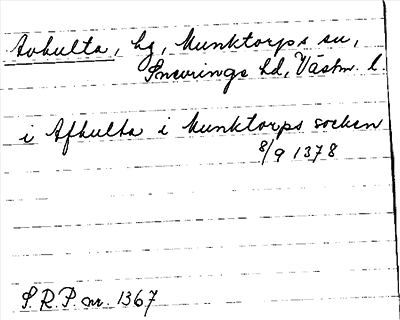 Avhulta, hg, Munktorps sn,
Snevringe hd, Västm. l.
i Afhulta i Munktorps socken
8/9 1378
S.R.P. nr. 1367